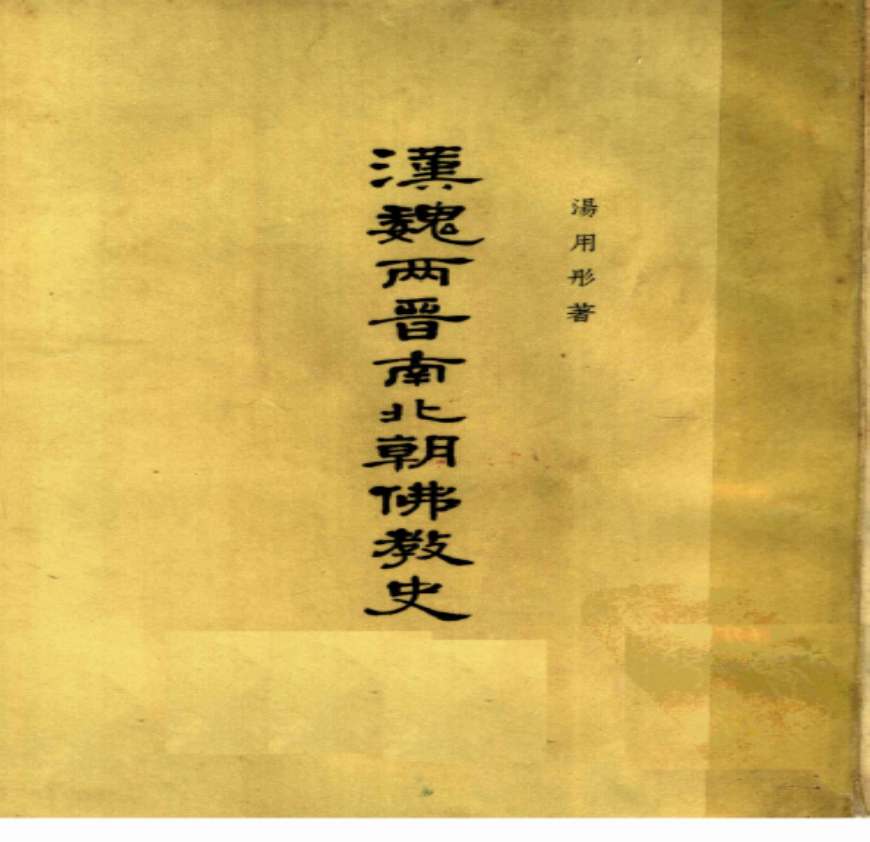 湯用彤著
漢魏两晋南北朝佛教史